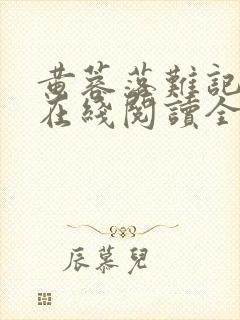 黄蓉落難記
在綫閱讀全
辰慕兒